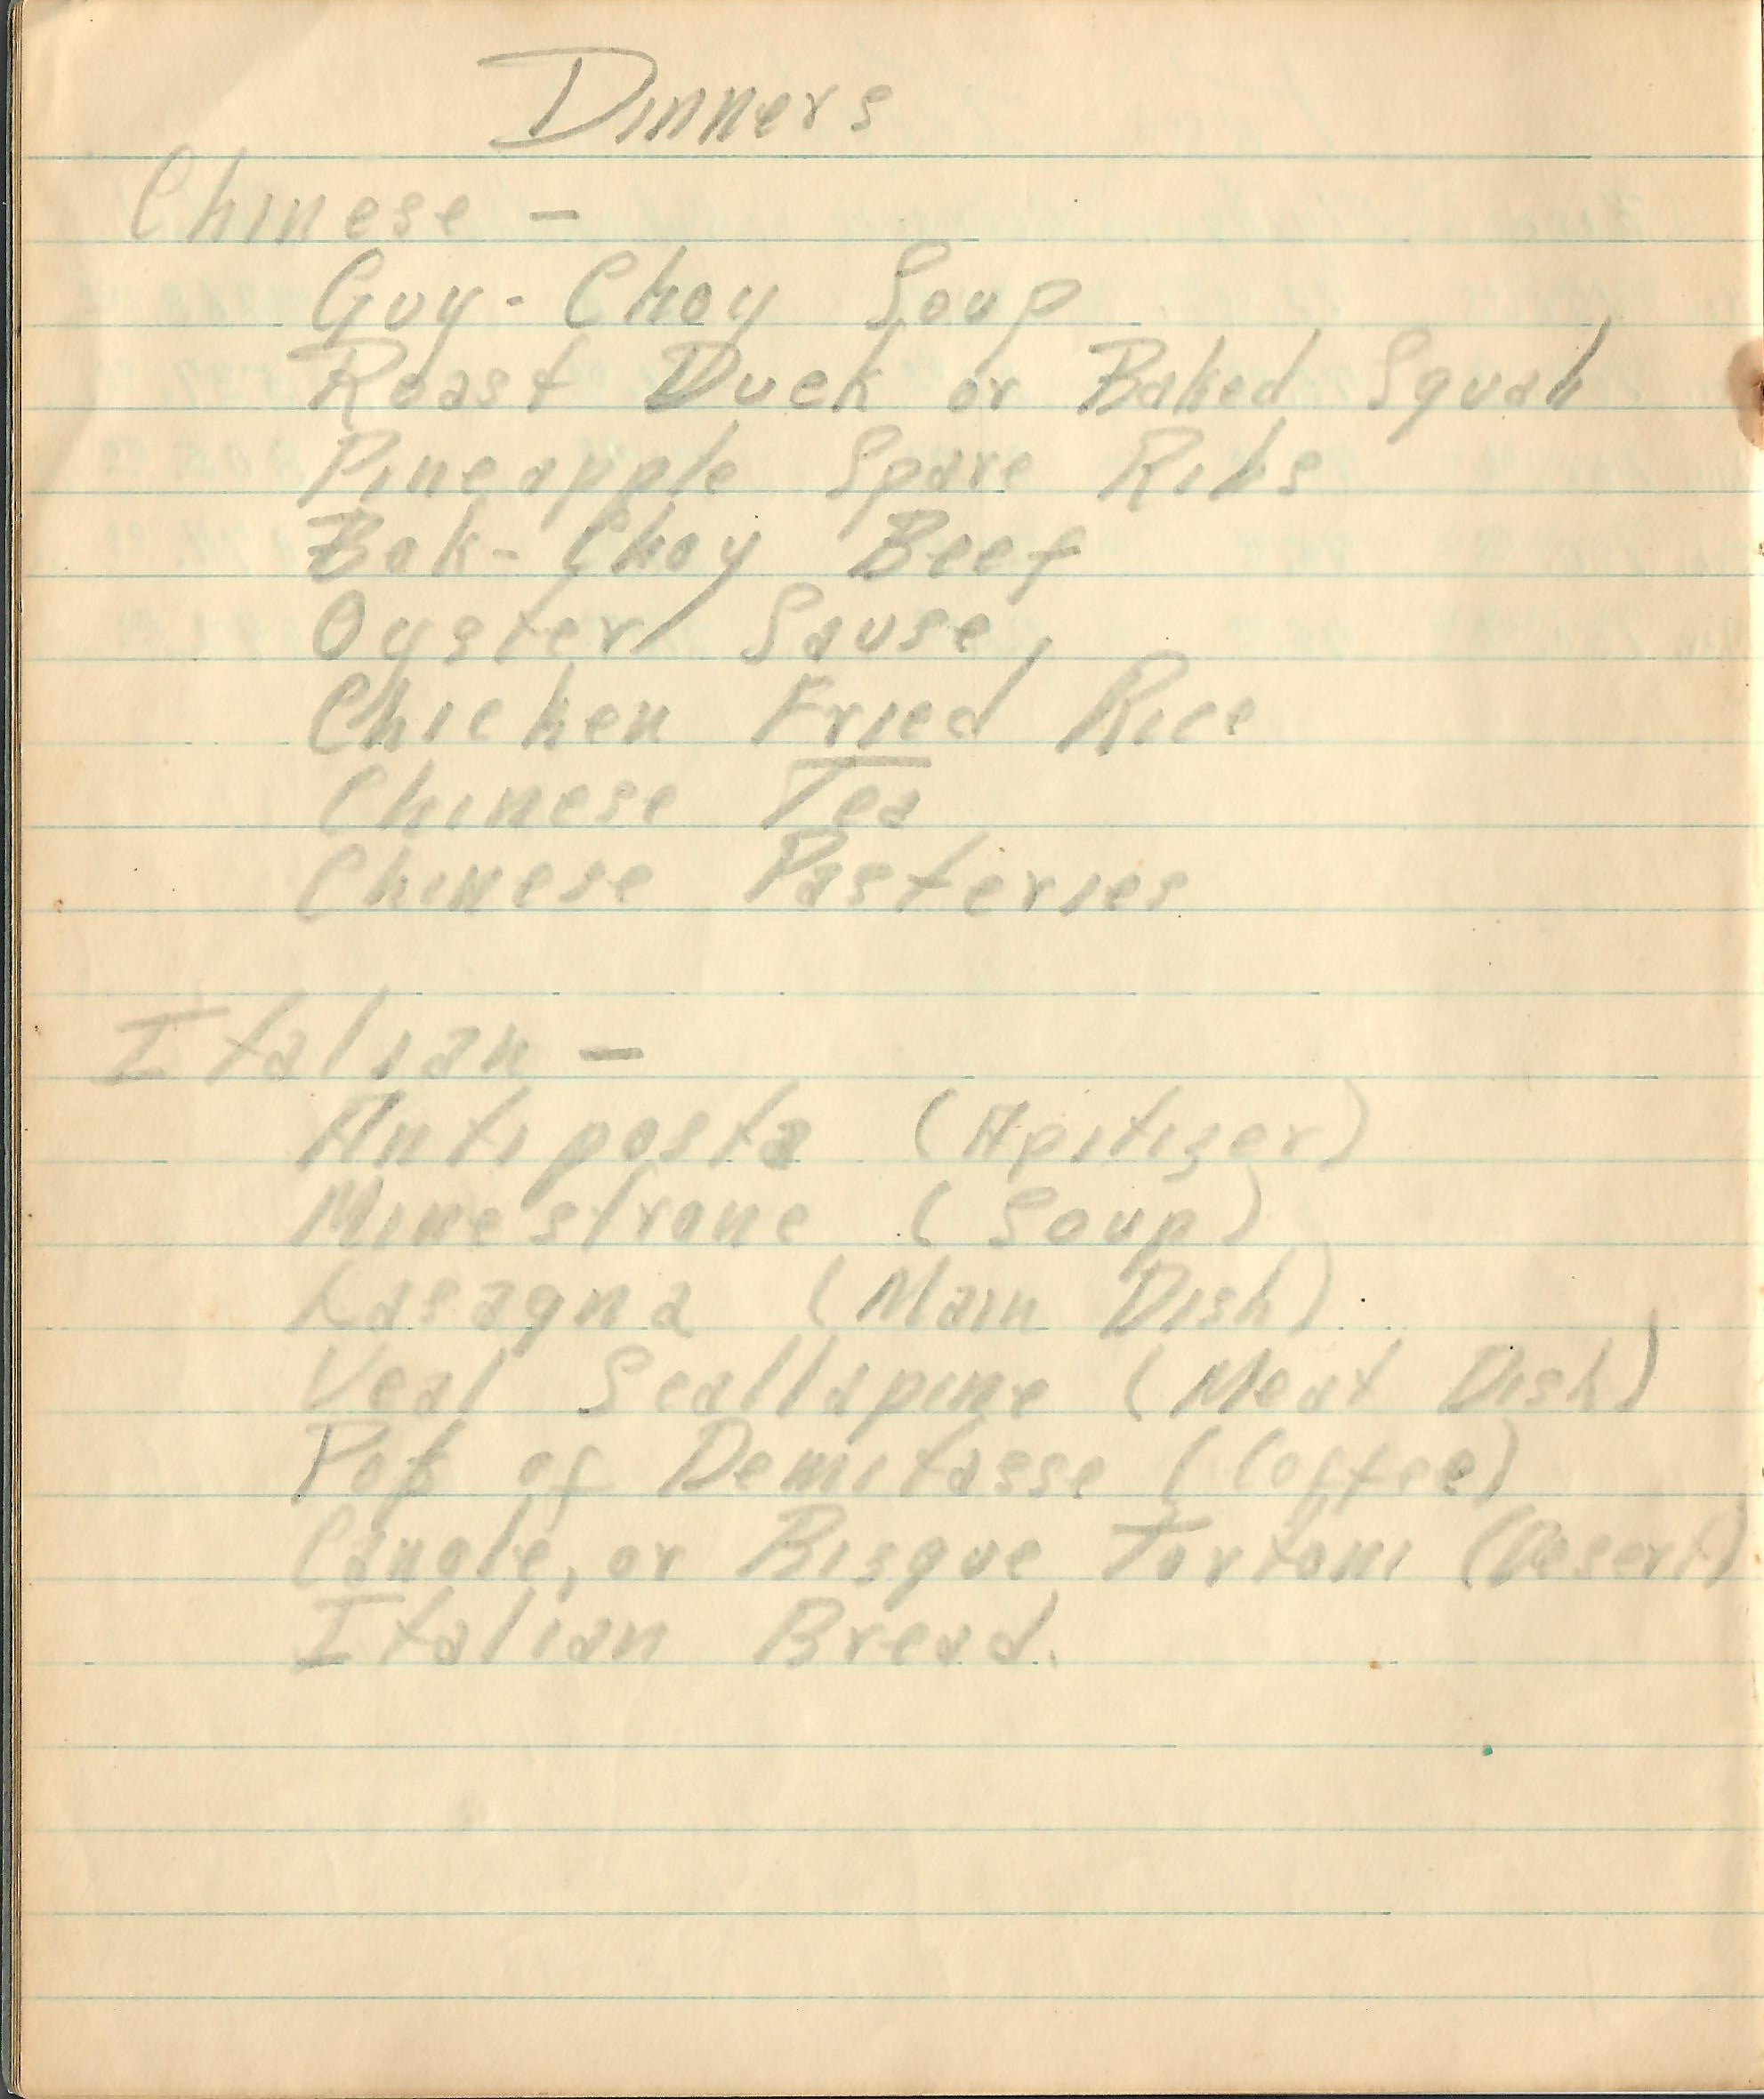 Dinners
Chinese -
Guy-Choy Soup
Roast Duck or Baked Squab
Pineapple Spare Ribs
Bok-Choy Beef
Oyster Sause
Chicken Fried Rice
Chinese Tea
Chinese Pasteries
Italian -
Antiposta (Apitizer)
Minestrone (Soup)
Lasagna (Main Dish)
Veal Scallapine (Meat Dish)
Pot of Demitasse (Coffee)
Canole, or Bisque Tortoni (Desert)
Italian Bread.